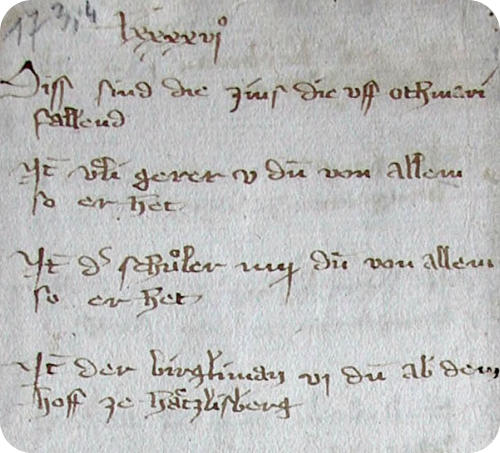 173,4
lxxxxvjº
Diss sind die zins die uff othmari
fallend
It̄ v̊li gerer v dn̄ von allem
so er het
It̄ d' schůler iiij dn̄ von allem
so er het
It̄ der birgliman vj dn̄ ab dem
hoff ze hätzlisberg